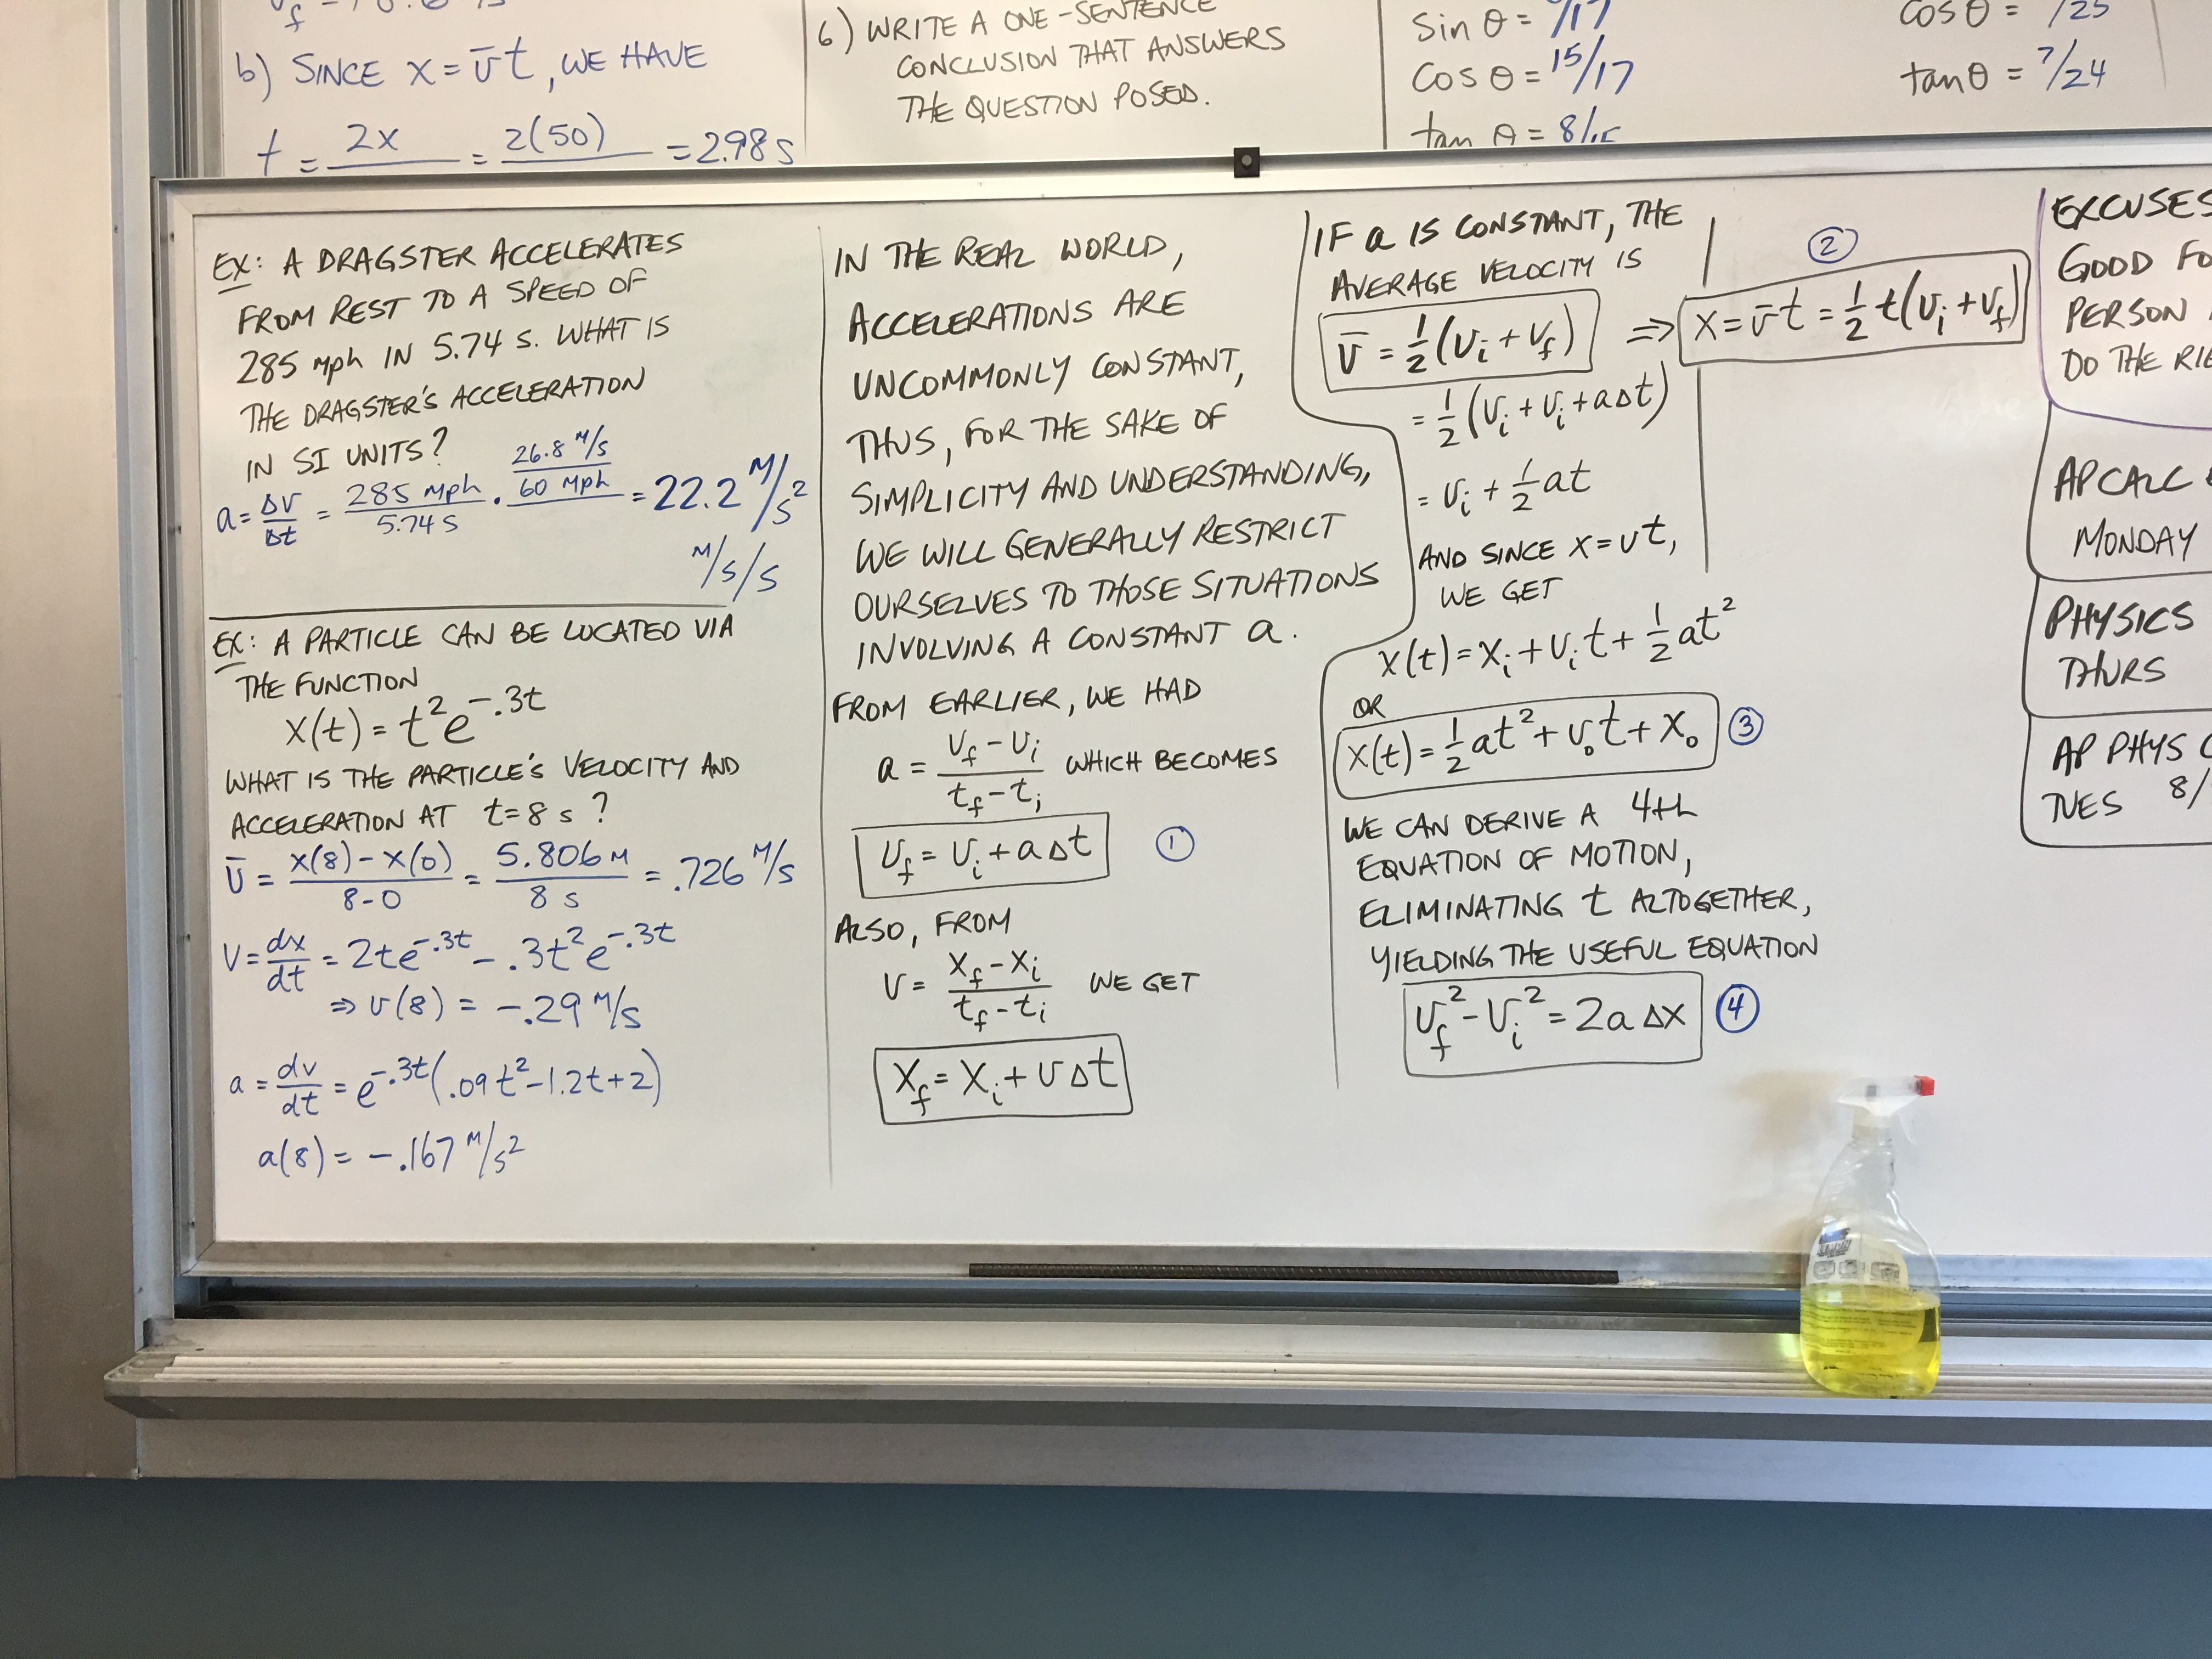 b) SINCE x = v̄t, WE HAVE
t = 2x = 2(50) = 2.98 s
6) WRITE A ONE-SENTENCE
CONCLUSION THAT ANSWERS
THE QUESTION POSED.
sin θ = /17
cos θ = 15/17
tan θ = 8/15
cos θ = /25
tan θ = 7/24
EX: A DRAGSTER ACCELERATES
FROM REST TO A SPEED OF
285 mph IN 5.74 s. WHAT IS
THE DRAGSTER'S ACCELERATION
IN SI UNITS?
a = Δv/Δt = 285 mph/5.74 s · 26.8 m/s/60 mph = 22.2 m/s²
m/s/s
EX: A PARTICLE CAN BE LOCATED VIA
THE FUNCTION
x(t) = t²e^-.3t
WHAT IS THE PARTICLE'S VELOCITY AND
ACCELERATION AT t=8 s?
v̄ = x(8)-x(0)/8-0 = 5.806 m/8 s = .726 m/s
v = dx/dt = 2te^-.3t - .3t²e^-.3t
⇒ v(8) = -.29 m/s
a = dv/dt = e^-.3t(.09t²-1.2t+2)
a(8) = -.167 m/s²
IN THE REAL WORLD,
ACCELERATIONS ARE
UNCOMMONLY CONSTANT,
THUS, FOR THE SAKE OF
SIMPLICITY AND UNDERSTANDING,
WE WILL GENERALLY RESTRICT
OURSELVES TO THOSE SITUATIONS
INVOLVING A CONSTANT a.
FROM EARLIER, WE HAD
a = vf-vi/tf-ti WHICH BECOMES
vf = vi + aΔt ①
ALSO, FROM
v = xf-xi/tf-ti WE GET
xf = xi + vΔt
IF a IS CONSTANT, THE
AVERAGE VELOCITY IS
v̄ = 1/2(vi+vf) ⇒ x = v̄t = 1/2 t(vi+vf) ②
= 1/2(vi+vi+aΔt)
= vi + 1/2at
AND SINCE x=vt,
WE GET
x(t) = xi+vit+1/2at²
OR
x(t) = 1/2at²+v₀t+x₀ ③
WE CAN DERIVE A 4th
EQUATION OF MOTION,
ELIMINATING t ALTOGETHER,
YIELDING THE USEFUL EQUATION
vf²-vi²=2aΔx ④
EXCUSES
GOOD
PERSON
DO THE
AP CALC
MONDAY
PHYSICS
THURS
AP PHYS C
TUES 8/